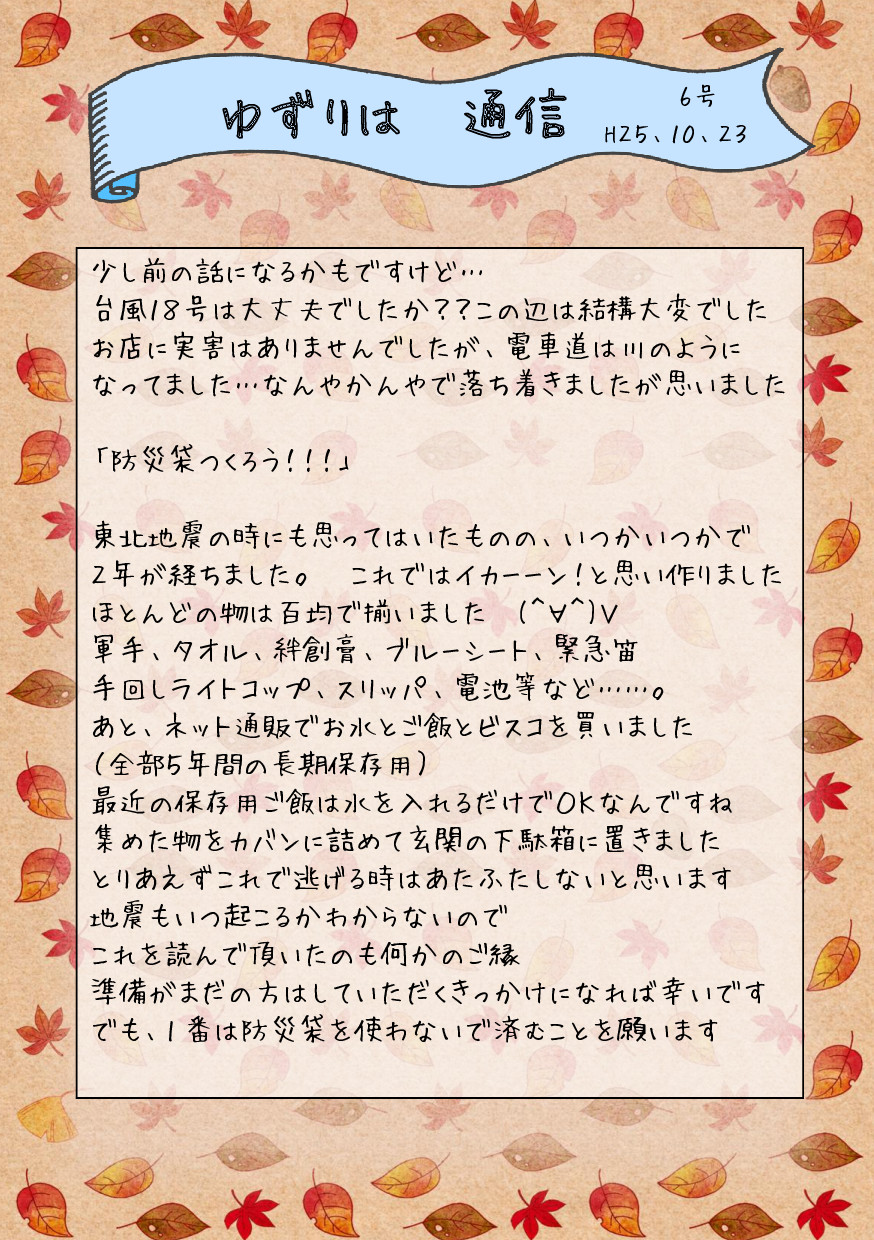 ゆずりは 通信
6号
H25、10、23
少し前の話になるかもですけど…
台風18号は大丈夫でしたか??この辺は結構大変でした
お店に実害はありませんでしたが、電車道は川のように
なってました…なんやかんやで落ち着きましたが思いました
「防災袋つくろう!!!」
東北地震の時にも思ってはいたものの、いつかいつかで
2年が経ちました。 これではイカーーン!と思い作りました
ほとんどの物は百均で揃いました (^∀^)V
軍手、タオル、絆創膏、ブルーシート、緊急笛
手回しライトコップ、スリッパ、電池等など……。
あと、ネット通販でお水とご飯とビスコを買いました
(全部5年間の長期保存用)
最近の保存用ご飯は水を入れるだけでOKなんですね
集めた物をカバンに詰めて玄関の下駄箱に置きました
とりあえずこれで逃げる時はあたふたしないと思います
地震もいつ起こるかわからないので
これを読んで頂いたのも何かのご縁
準備がまだの方はしていただくきっかけになれば幸いです
でも、1番は防災袋を使わないで済むことを願います